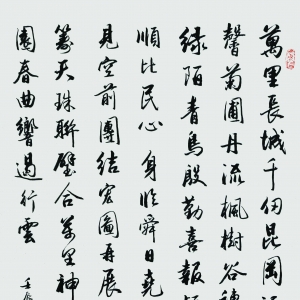 萬里長城千仞昆岡
馨菊圃丹流楓樹谷穗
綠陌青鳥殷勤喜報
順比民心身臨舜日堯
見空前團結宏圖再展
籌天珠聯璧合萬里神
園春曲響遏行雲
壬辰